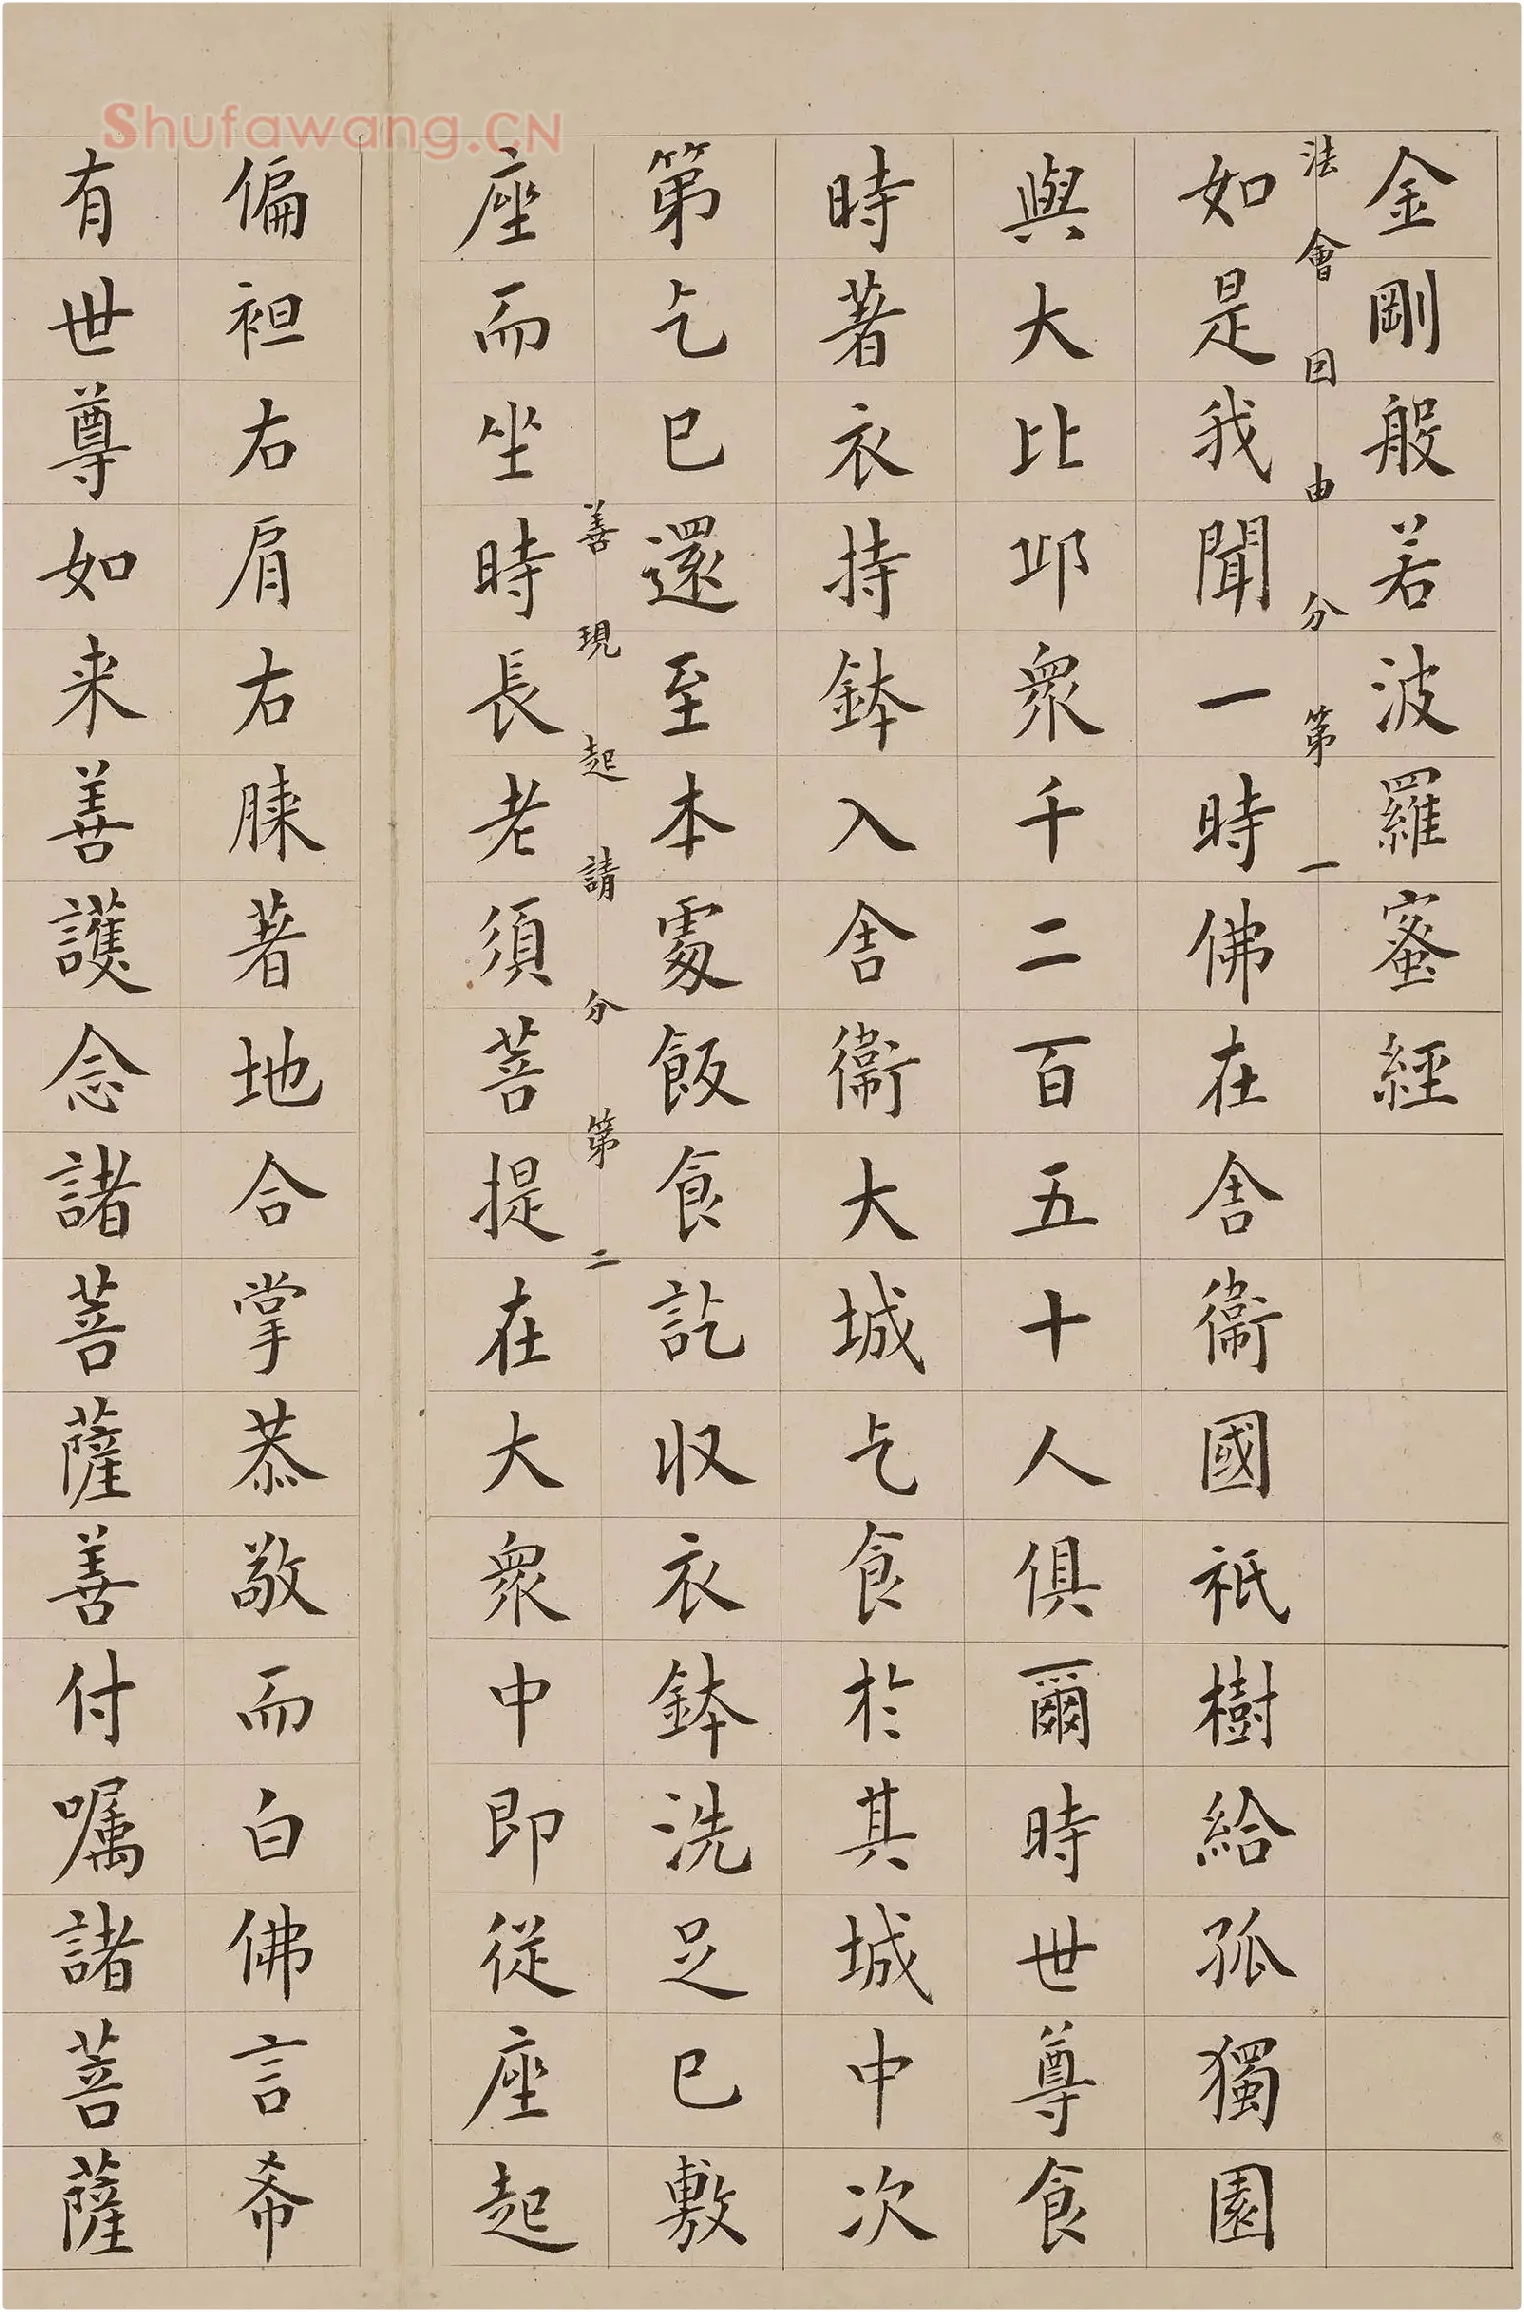 Shufawang.CN
金剛般若波羅蜜經
法會因由分第一
如是我聞一時佛在舍衞國祇樹給孤獨園
與大比邱衆千二百五十人俱爾時世尊食
時著衣持鉢入舍衞大城乞食於其城中次
第乞已還至本處飯食訖收衣鉢洗足已敷
善現起請分第二
座而坐時長老須菩提在大衆中即從座起
偏袒右肩右膝著地合掌恭敬而白佛言希
有世尊如来善護念諸菩薩善付嘱諸菩薩